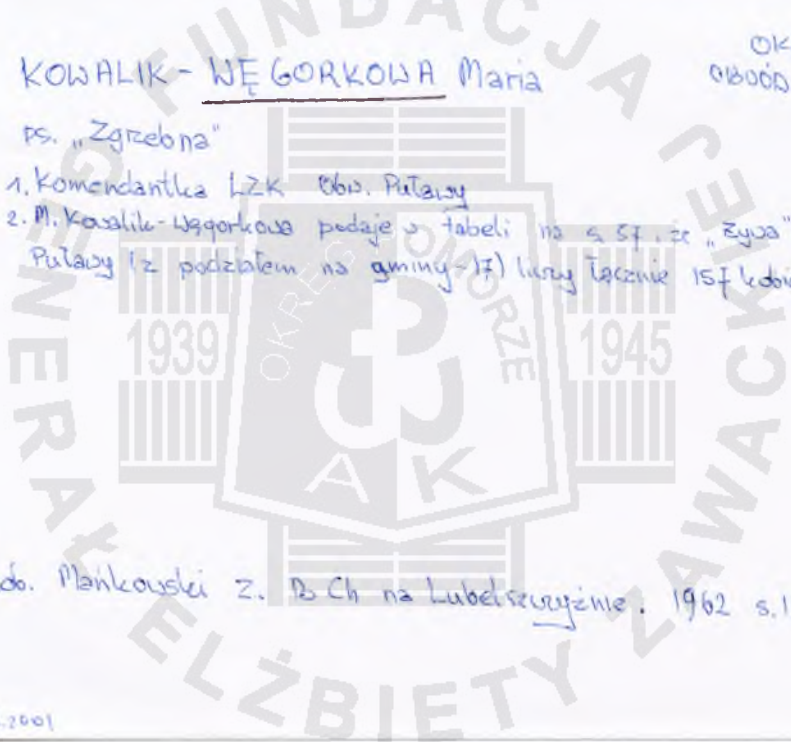 OK
OBWÓD
KOWALIK - WĘGORKOWA Maria
ps. „Zgrzebna"
1. Komendantka LZK Obw. Puławy
2. M. Kowalik-Węgorkowa podaje w tabeli na s. 57, że „Żywa"
Puławy (z podziałem na gminy-17) liczy łącznie 157 kobie
do. Mańkowski Z. B Ch na Lubelszczyźnie. 1962 s. 1
.2001
FUNDACJA
GENERAŁ ELŻBIETY ZAWACKIEJ
OKRĘG POMORZE
1939
1945
AK